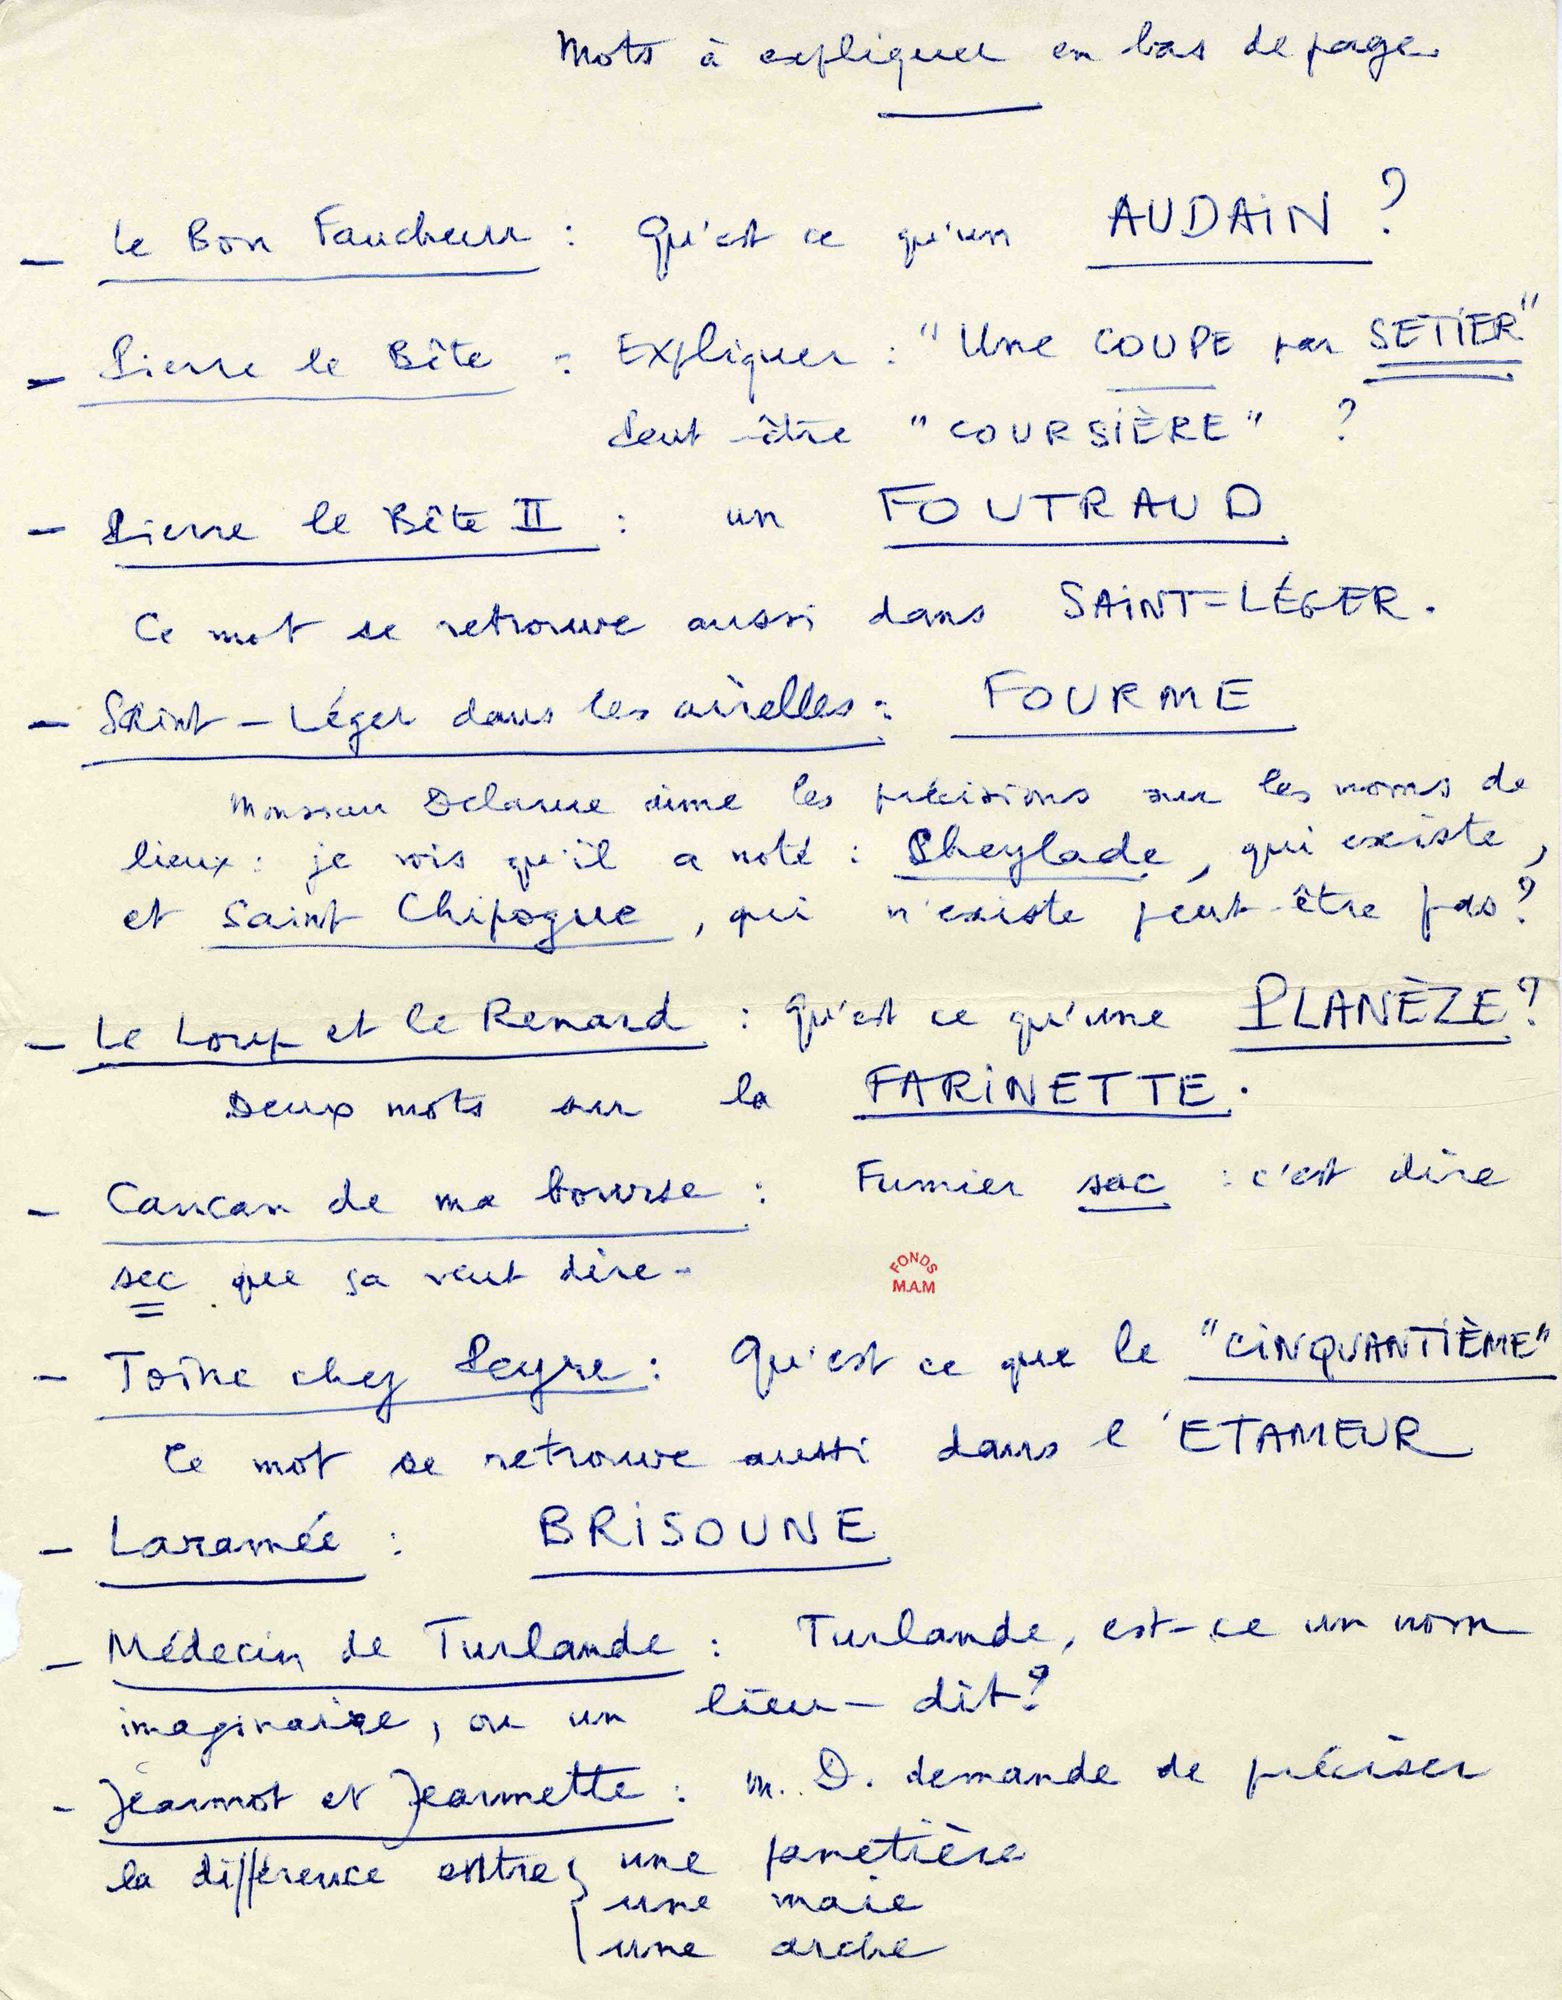 Mots à expliquer en bas de page
- Le Bon Faucheur : Qu'est ce qu'un AUDAIN ?
- Pierre le Bête : Expliquer : "Une COUPE par SETIER"
Peut-être "COURSIÈRE" ?
- Pierre le Bête II : un FOUTRAUD
Ce mot se retrouve aussi dans SAINT=LÉGER.
- Saint-Léger dans les airelles : FOURME
Monsieur Delarue aime les précisions sur les noms de
lieux : je vois qu'il a noté : Cheylade, qui existe,
et Saint Chipogue, qui n'existe peut-être pas ?
- Le Loup et le Renard : Qu'est ce qu'une PLANÈZE ?
Deux mots sur la FARINETTE.
- Cancan de ma bourse : Fumier sac : c'est dire
sec que ça veut dire -
FONDS
M.A.M
- Toine chez Peyre : Qu'est ce que le "CINQUANTIÈME"
Ce mot se retrouve aussi dans l'ETAMEUR
- Laramée : BRISOUNE
- Médecin de Turlande : Turlande, est-ce un nom
imaginaire, ou un lieu-dit ?
- Jeannot et Jeannette : M. D. demande de préciser
la différence entre { une panetière
une maie
une arche